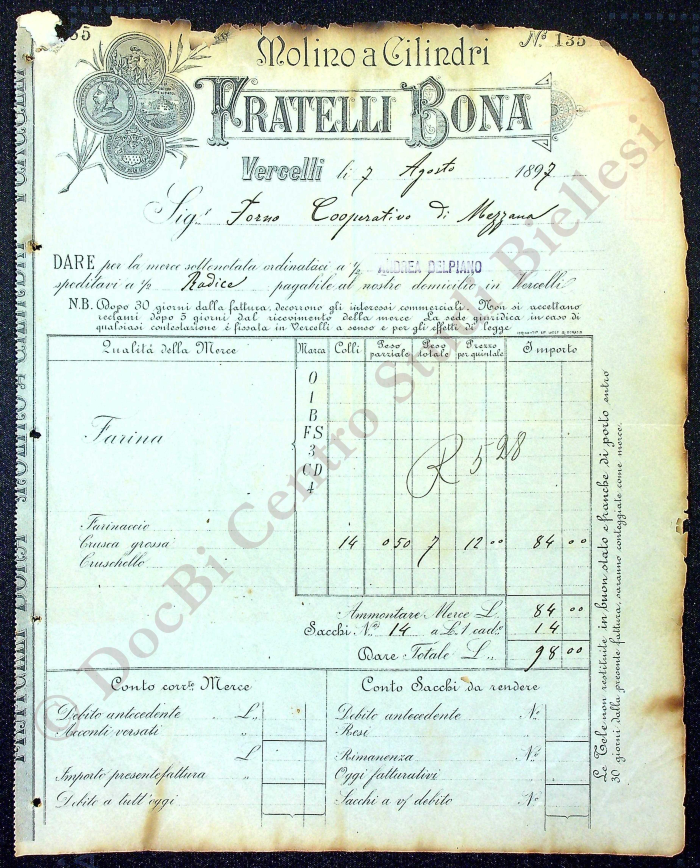 35
Nº 135
Molino a Cilindri
FRATELLI BONA
Vercelli li 7 Agosto 1897
Sigr Forno Cooperativo di Mezzana
DARE per la merce sottonotata ordinataci a ½ ANDREA DELPIANO
speditavi a ½ Radice pagabile al nostro domicilio in Vercelli
N.B. Dopo 30 giorni dalla fattura, decorrono gli interessi commerciali. Non si accettano
reclami dopo 5 giorni dal ricevimento della merce. La sede giuridica in caso di
qualsiasi contestazione è fissata in Vercelli a senso e per gli effetti di legge
Qualità della Merce Marca Colli Peso parziale Peso totale Prezzo per quintale Importo
O
I
B
Farina FS
3
CD
4
R 528
Farinaccio
Crusca grossa 14 0 50 7 12 00 84 00
Cruschello
Ammontare Merce L. 84 00
Sacchi N.º 14 a L. 1 cad.º 14
Dare Totale L „ 98 00
Conto corrte Merce
Debito antecedente L „
Acconti versati „
L
Importo presente fattura „
Debito a tutt'oggi
Conto Sacchi da rendere
Debito antecedente Nº
Resi „
Rimanenza Nº
Oggi fatturativi
Sacchi a v/ debito Nº
Le Tele non restituite in buon stato e franche di porto entro
30 giorni dalla presente fattura, saranno conteggiate come merce.
© DocBi Centro Studi Biellesi